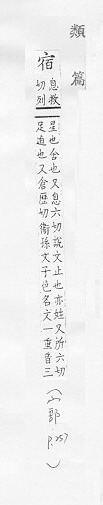 類篇
宿
息救
切列
星也舍也又息六切說文止也亦姓又所六切
足迫也又倉歷切衛孫文子邑名文一重音三
(宀部 p.257)